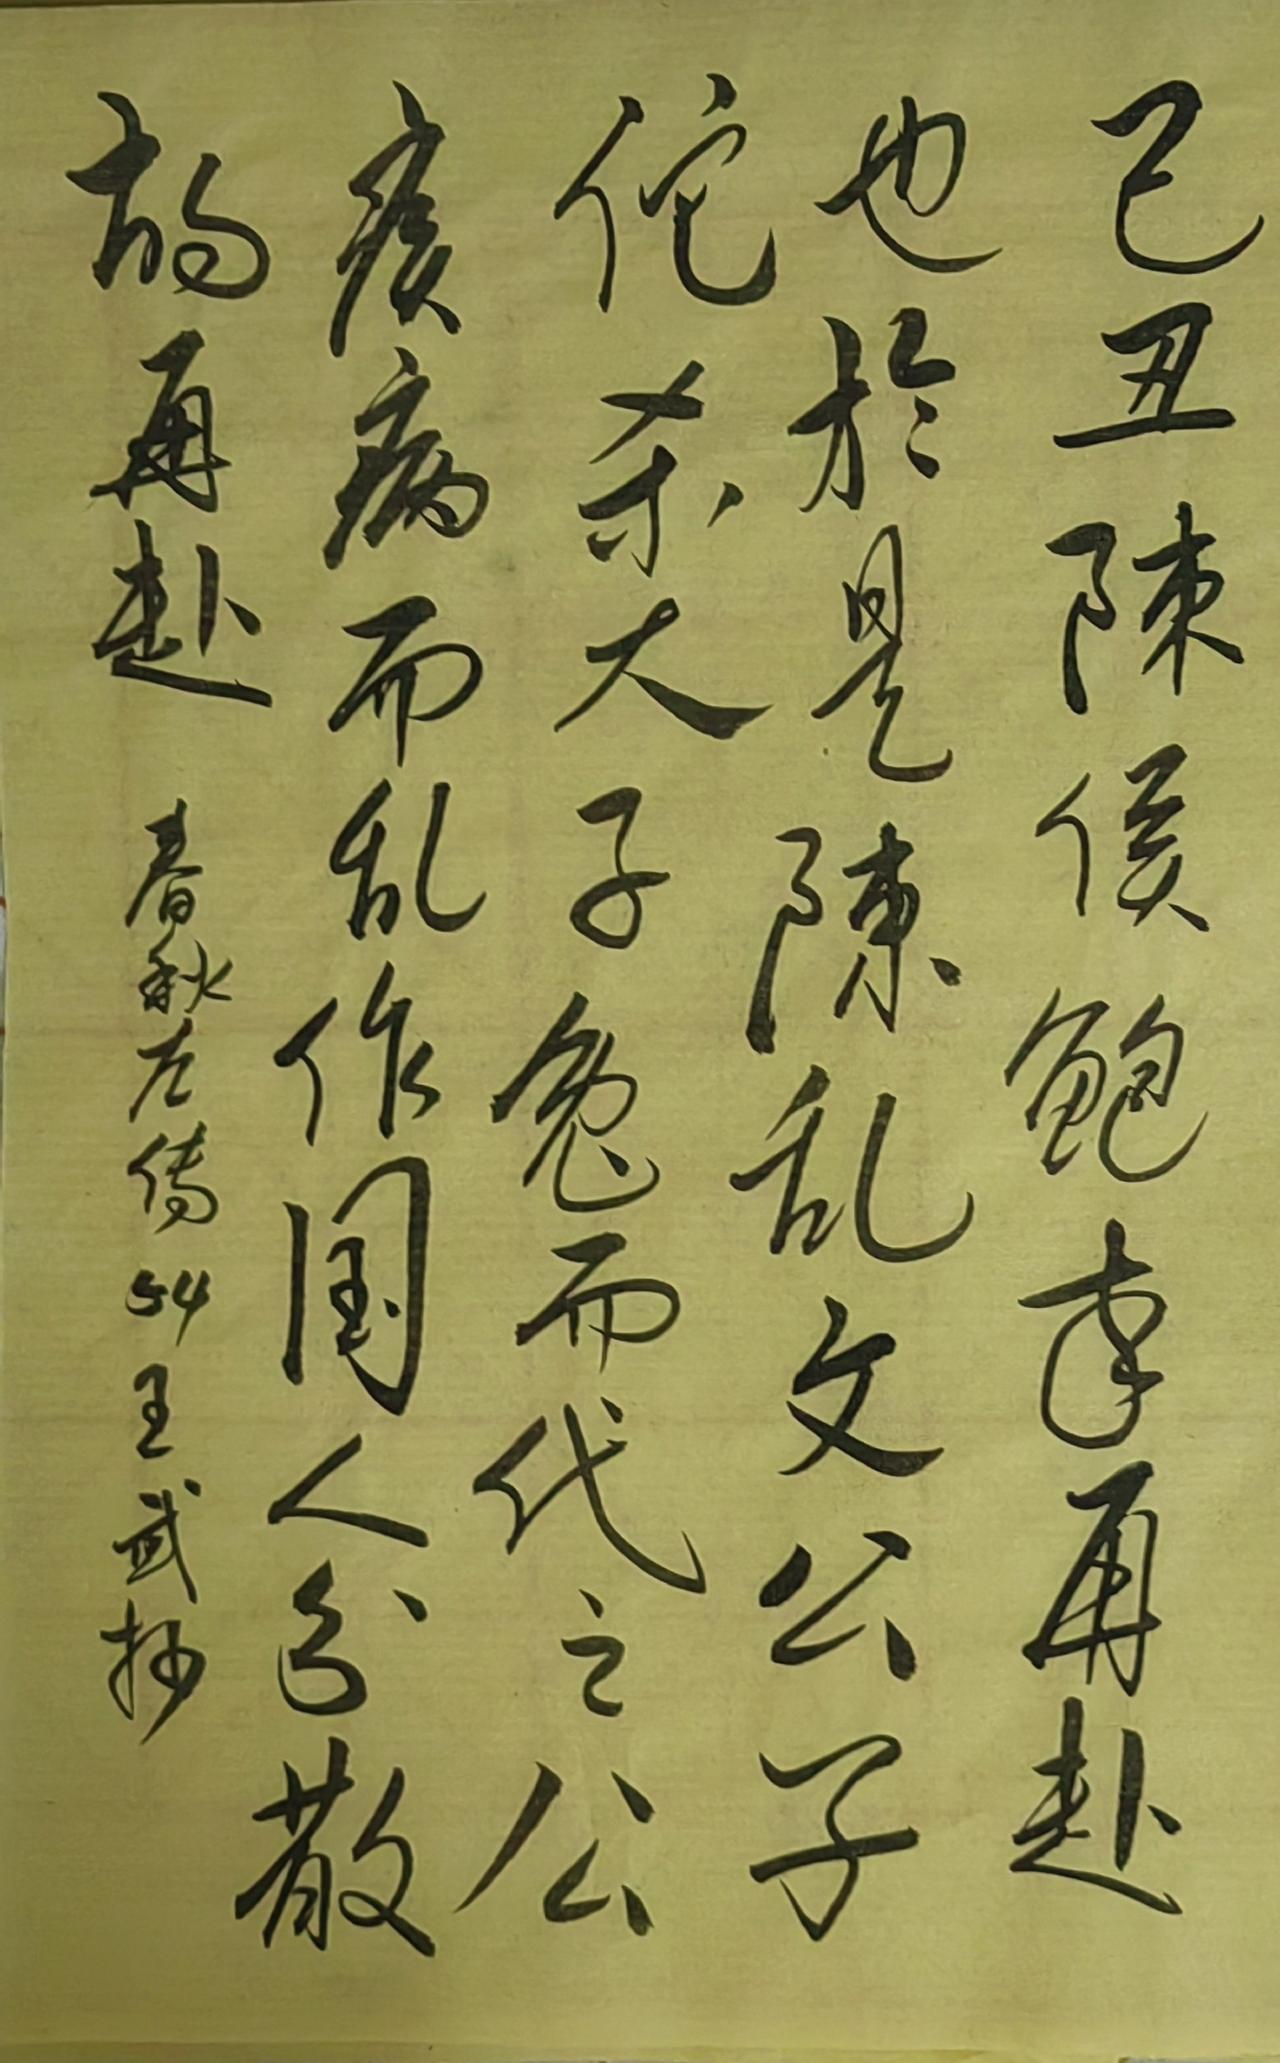 己丑陳侯鲍卒再赴
也於是陳乱文公子
佗杀大子免而代之公
疾病而乱作国人分散
故再赴
春秋左傳54王武抄